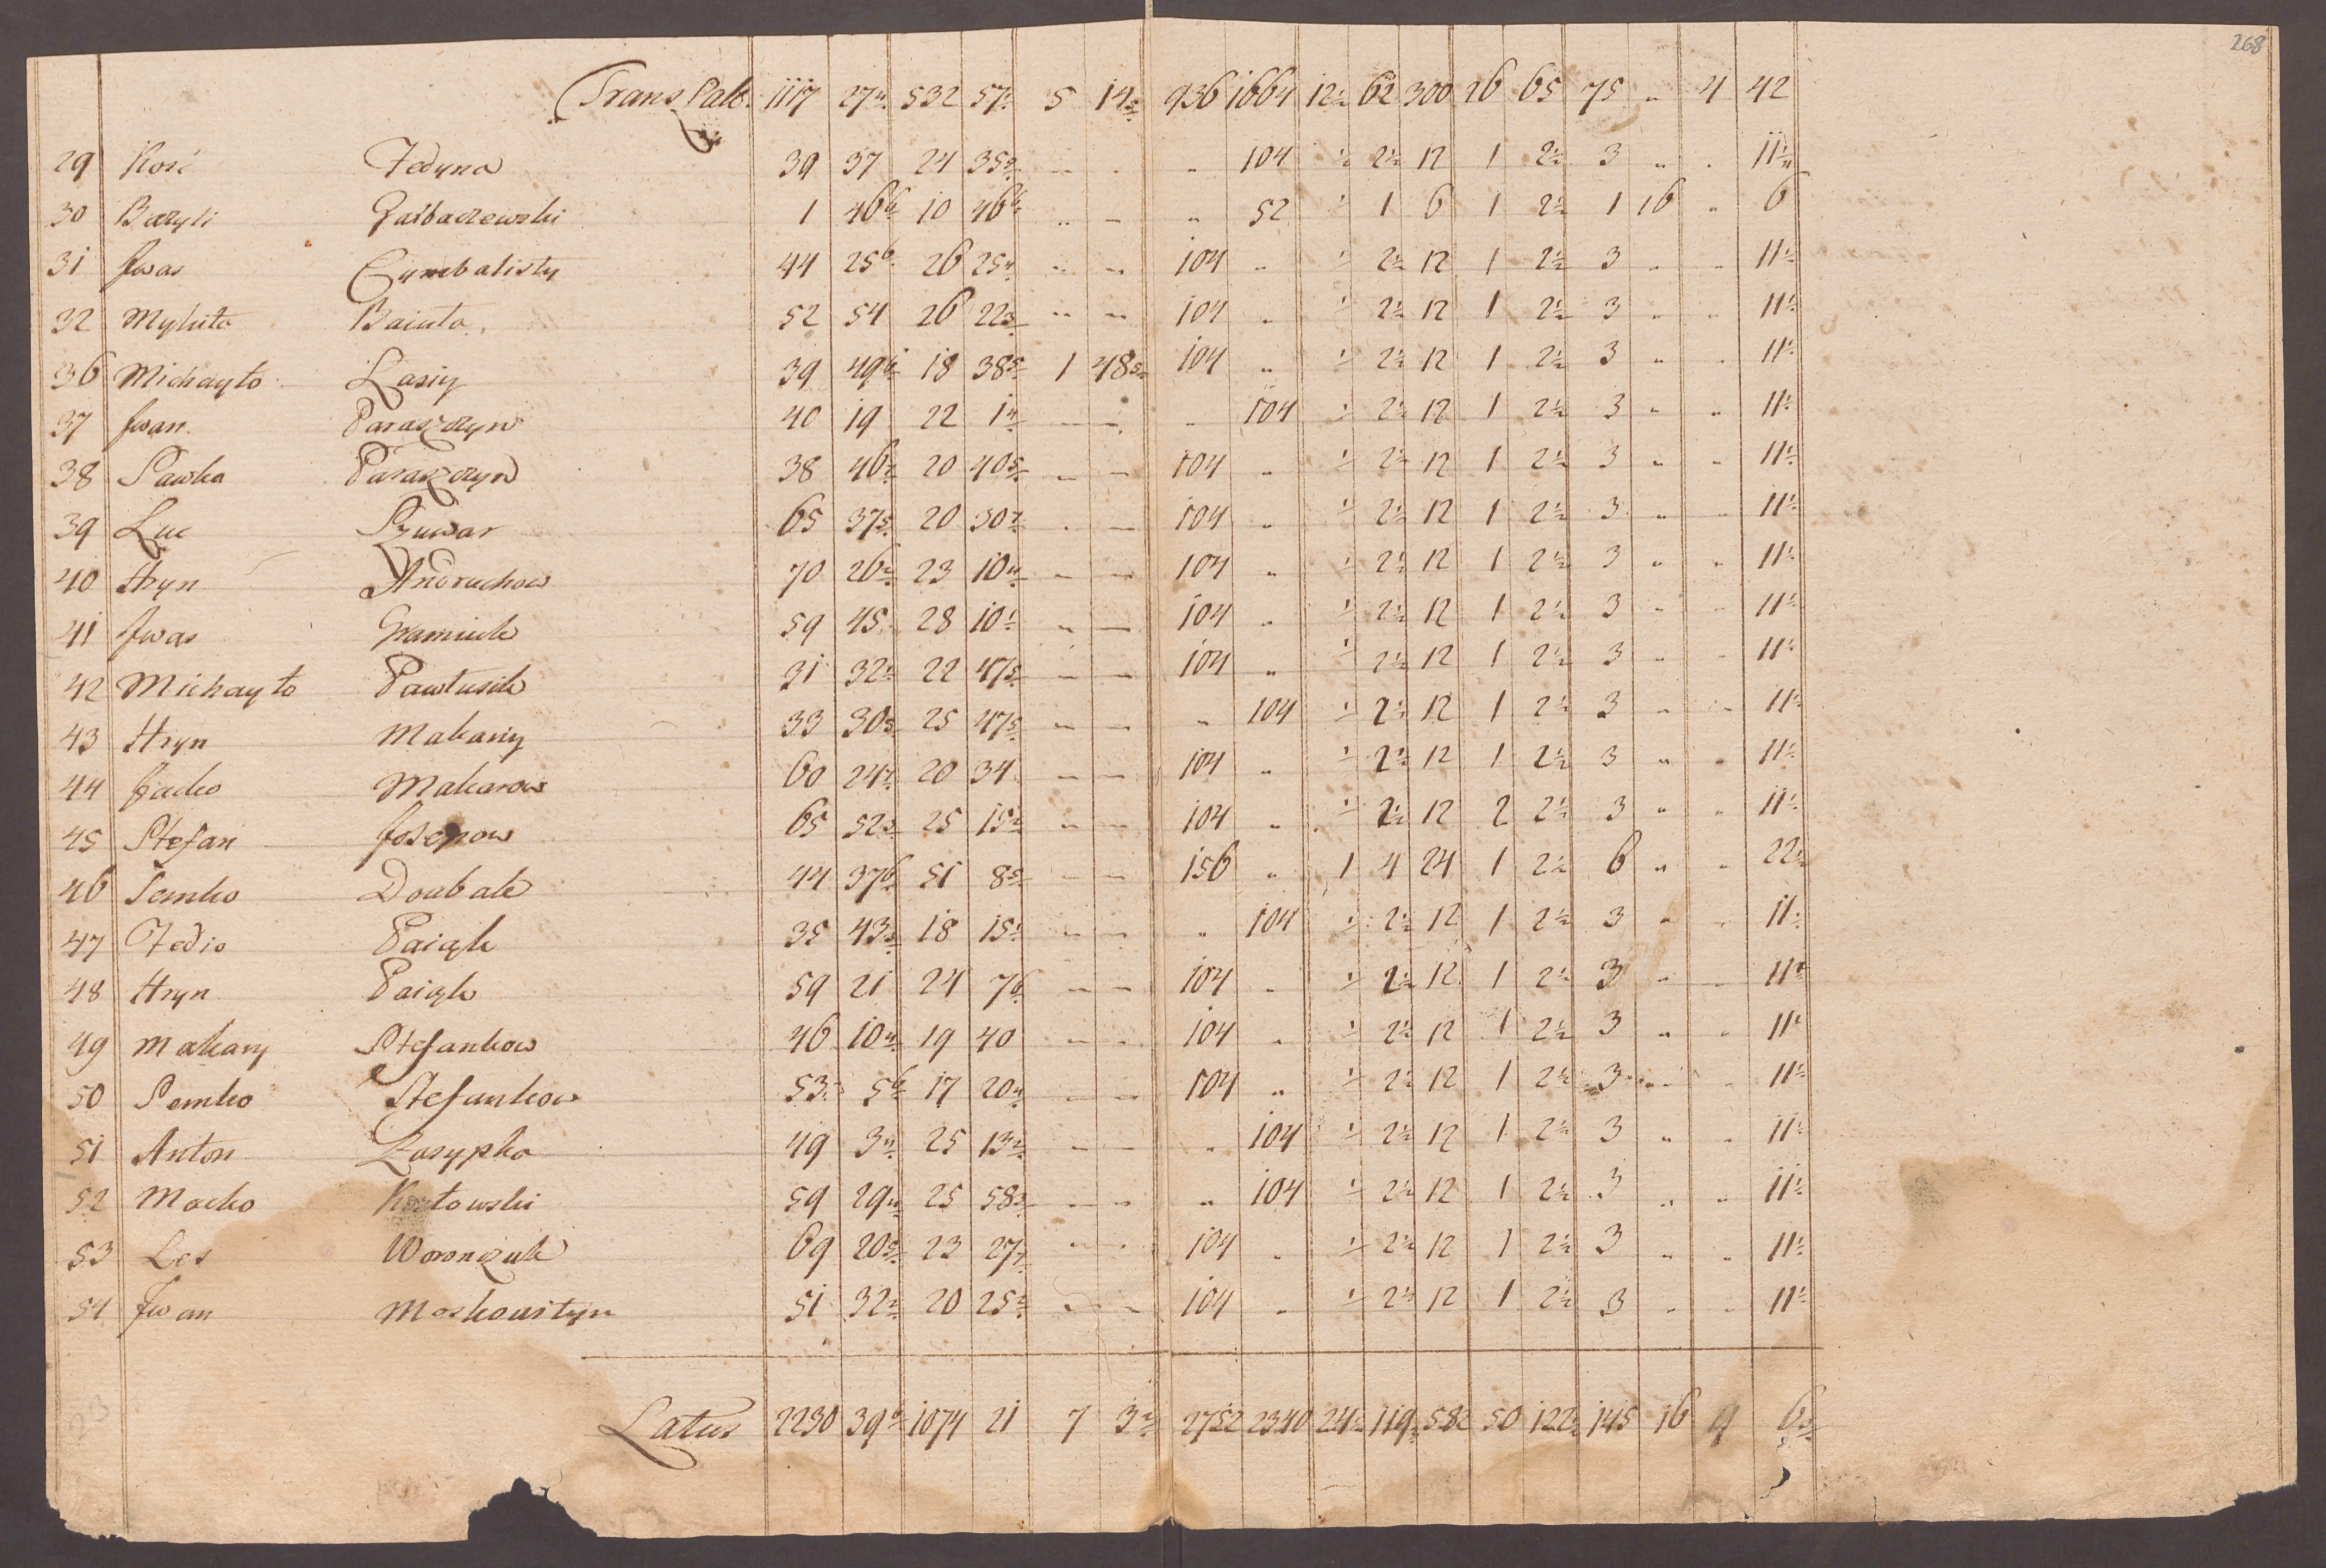 268
Trans Lalb. 1117 27 4/ 532 57 5 14 936 1664 12 1/2 62 300 26 65 75 „ 4 42
29 Kość Fedyna 39 37 24 35 „ 104 1/2 2 1/2 12 1 2 1/2 3 „ „ 11 1/2
30 Bazyli Garbaczewski 1 46 10 46 „ 52 1 6 1 2 1/2 1 16 „ 6
31 Iwas Cymbalisty 44 25 26 25 104 „ 1/2 2 1/2 12 1 2 1/2 3 „ „ 11 1/2
32 Mykita Baiuta 52 54 26 22 104 „ 1/2 2 1/2 12 1 2 1/2 3 „ „ 11 1/2
36 Michayło Lasiy 39 49 18 38 1 48 104 „ 1/2 2 1/2 12 1 2 1/2 3 „ „ 11 1/2
37 Iwan Paraszczyn 40 19 22 1 „ 104 1/2 2 1/2 12 1 2 1/2 3 „ „ 11 1/2
38 Pawko Paraszczyn 38 46 20 40 104 „ 1/2 2 1/2 12 1 2 1/2 3 „ „ 11 1/2
39 Luc 65 37 20 30 104 „ 1/2 2 1/2 12 1 2 1/2 3 „ „ 11 1/2
40 Hryn Andruchow 70 26 23 10 104 „ 1/2 2 1/2 12 1 2 1/2 3 „ „ 11 1/2
41 Iwas 59 45 28 10 104 „ 1/2 2 1/2 12 1 2 1/2 3 „ „ 11 1/2
42 Michayło Pawlusik 31 32 22 47 104 „ 1/2 2 1/2 12 1 2 1/2 3 „ „ 11 1/2
43 Hryn Makariy 33 30 25 47 „ 104 1/2 2 1/2 12 1 2 1/2 3 „ „ 11 1/2
44 Jacko Makarow 60 24 20 34 104 „ 1/2 2 1/2 12 1 2 1/2 3 „ „ 11 1/2
45 Stefan Josepow 65 52 25 15 104 „ 1/2 2 1/2 12 2 2 1/2 3 „ „ 11 1/2
46 Semko Doubak 44 37 51 8 156 „ 1 4 24 1 2 1/2 6 „ „ 22 1/2
47 Fedio Paiqk 35 43 18 15 „ 104 1/2 2 1/2 12 1 2 1/2 3 „ „ 11 1/2
48 Hryn Paiqk 59 21 24 7 104 „ 1/2 2 1/2 12 1 2 1/2 3 „ „ 11 1/2
49 Makary Stefankow 46 10 19 40 104 „ 1/2 2 1/2 12 1 2 1/2 3 „ „ 11 1/2
50 Semko Stefankow 53 5 17 20 104 „ 1/2 2 1/2 12 1 2 1/2 3 „ „ 11 1/2
51 Anton Zasypka 49 3 25 13 „ 104 1/2 2 1/2 12 1 2 1/2 3 „ „ 11 1/2
52 Macko Kozłowski 59 29 25 58 „ 104 1/2 2 1/2 12 1 2 1/2 3 „ „ 11 1/2
53 Les Woronzuk 69 20 23 27 104 „ 1/2 2 1/2 12 1 2 1/2 3 „ „ 11 1/2
54 Iwan Moskoustyn 51 32 20 25 104 „ 1/2 2 1/2 12 1 2 1/2 3 „ „ 11 1/2
Latus 2230 39 1074 21 7 3 2752 2340 24 1/2 119 582 50 122 1/2 145 16 9 6